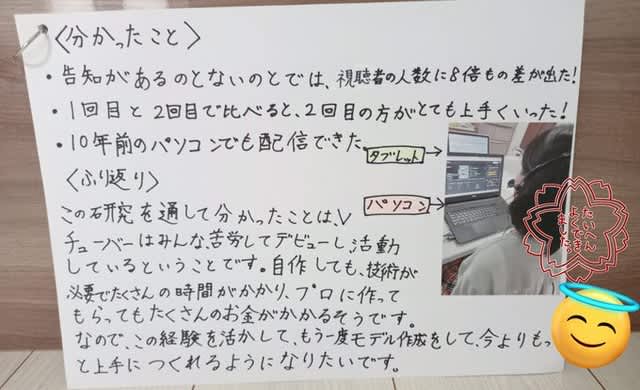 〈分かったこと〉
・告知があるのとないのとでは、視聴者の人数に8倍もの差が出た!
・1回目と2回目で比べると、2回目の方がとても上手くいった!
・10年前のパソコンでも配信できた。
タブレット
パソコン
〈ふり返り〉
この研究を通して分かったことは、V
チューバーはみんな苦労してデビューし、活動
しているということです。自作しても、技術が
必要でたくさんの時間がかかり、プロに作って
もらってもたくさんのお金がかかるそうです。
なので、この経験を活かして、もう一度モデル作成をして、今よりもっ
と上手につくれるようになりたいです。
たいへん
よくでき
ました